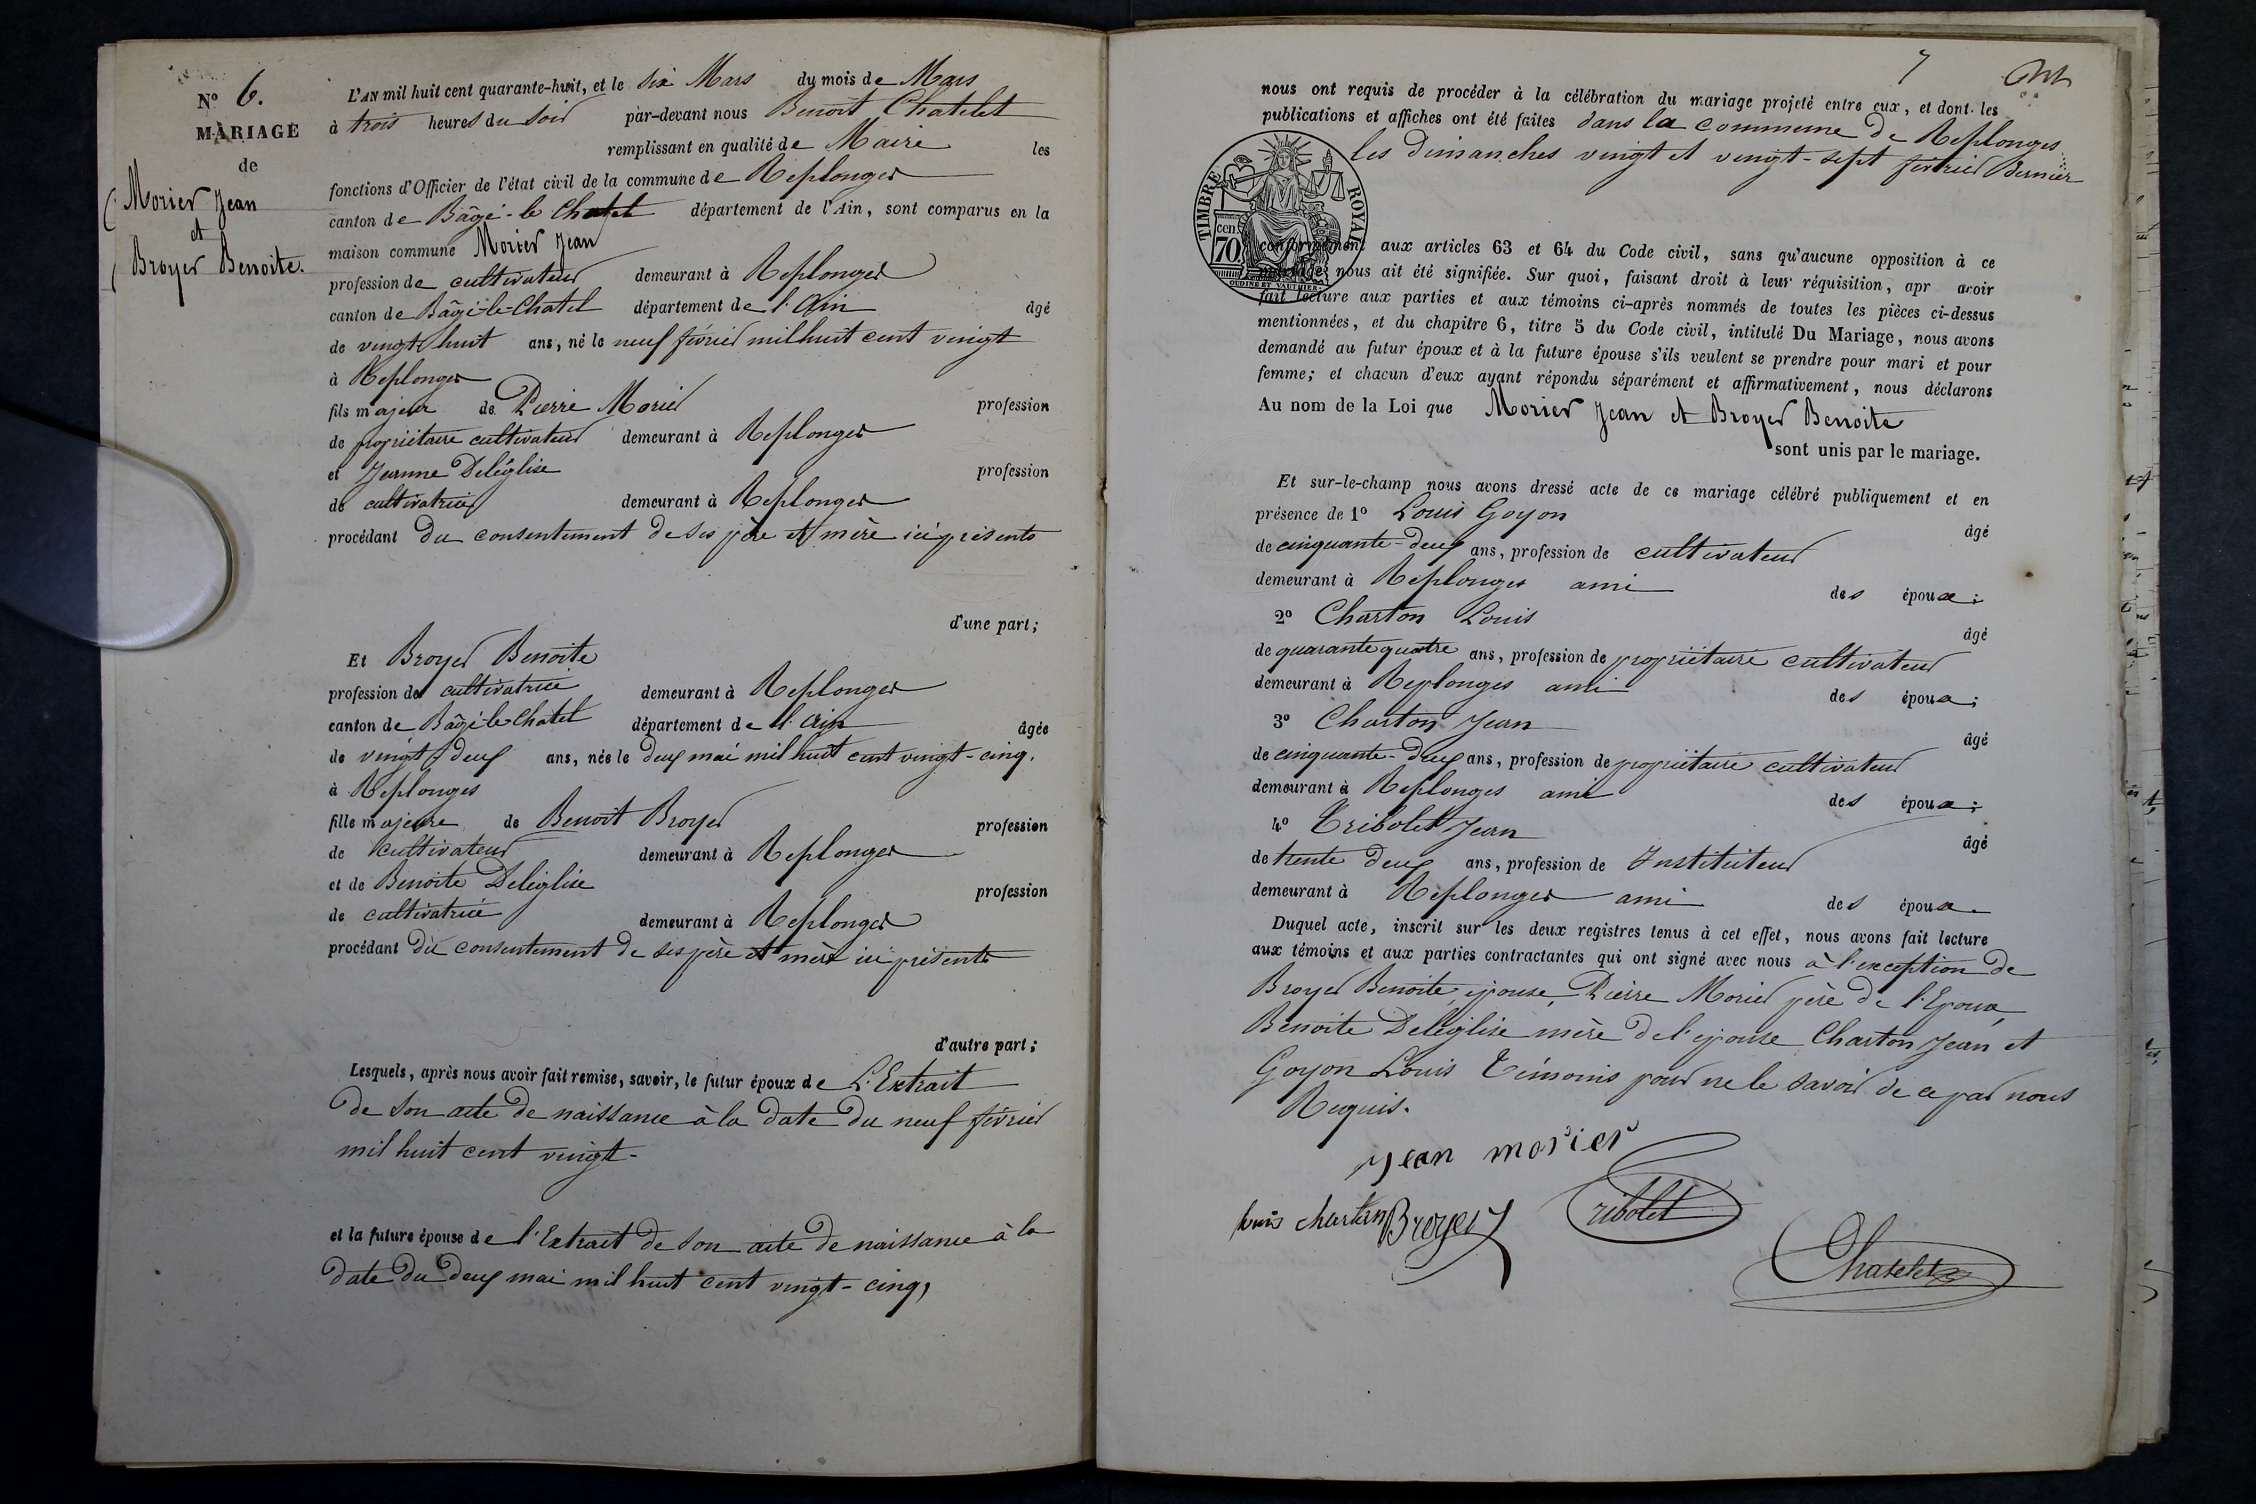 N° 6.
MARIAGE
de
Morier Jean
et
Broyer Benoite.
L'AN mil huit cent quarante-huit, et le six Mars du mois de Mars
à trois heures du soir par-devant nous Benoit Chatelet
remplissant en qualité de Maire les
fonctions d'Officier de l'état civil de la commune de Replonges
canton de Bâgé-le-Chatel département de l'Ain, sont comparus en la
maison commune Morier Jean
profession de cultivateur demeurant à Replonges
canton de Bâgé-le-Chatel département de l'Ain âgé
de vingt huit ans, né le neuf février mil huit cent vingt
à Replonges
fils majeur de Pierre Morier profession
de propriétaire cultivateur demeurant à Replonges
et Jeanne Deléglise profession
de cultivatrice demeurant à Replonges
procédant du consentement de ses père et mère ici présents
d'une part;
Et Broyer Benoite
profession de cultivatrice demeurant à Replonges
canton de Bâgé-le-Chatel département de l'Ain âgée
de vingt deux ans, née le deux mai mil huit cent vingt-cinq.
à Replonges
fille majeure de Benoit Broyer profession
de cultivateur demeurant à Replonges
et de Benoite Deléglise profession
de cultivatrice demeurant à Replonges
procédant du consentement de ses père et mère ici présents
d'autre part;
Lesquels, après nous avoir fait remise, savoir, le futur époux de L'Extrait
de son acte de naissance à la date du neuf février
mil huit cent vingt-
et la future épouse de l'Extrait de son acte de naissance à la
date du deux mai mil huit cent vingt-cinq,
7
nous ont requis de procéder à la célébration du mariage projeté entre eux, et dont les
publications et affiches ont été faites dans la commune de Replonges
les dimanches vingt et vingt-sept février Dernier
TIMBRE ROYAL
70 cen.
OUDINE ET VAUTHIER.
conformément aux articles 63 et 64 du Code civil, sans qu'aucune opposition à ce
mariage nous ait été signifiée. Sur quoi, faisant droit à leur réquisition, apr avoir
fait lecture aux parties et aux témoins ci-après nommés de toutes les pièces ci-dessus
mentionnées, et du chapitre 6, titre 5 du Code civil, intitulé Du Mariage, nous avons
demandé au futur époux et à la future épouse s'ils veulent se prendre pour mari et pour
femme; et chacun d'eux ayant répondu séparément et affirmativement, nous déclarons
Au nom de la Loi que Morier Jean et Broyer Benoite
sont unis par le mariage.
Et sur-le-champ nous avons dressé acte de ce mariage célébré publiquement et en
présence de 1° Louis Goyon âgé
de cinquante-deux ans, profession de cultivateur
demeurant à Replonges ami des époux;
2° Charton Louis âgé
de quarante quatre ans, profession de propriétaire cultivateur
demeurant à Replonges ami des époux;
3° Charton Jean âgé
de cinquante-deux ans, profession de propriétaire cultivateur
demeurant à Replonges ami des époux;
4° Tribolet Jean âgé
de trente deux ans, profession de Instituteur
demeurant à Replonges ami des époux.
Duquel acte, inscrit sur les deux registres tenus à cet effet, nous avons fait lecture
aux témoins et aux parties contractantes qui ont signé avec nous à l'exception de
Broyer Benoite, épouse, Pierre Morier père de l'Epoux,
Benoite Deléglise mère de l'épouse Charton Jean et
Goyon Louis Témoins pour ne le savoir de ce par nous
Requis.
Jean morier
louis charton Broyer Tribolet
Chatelet